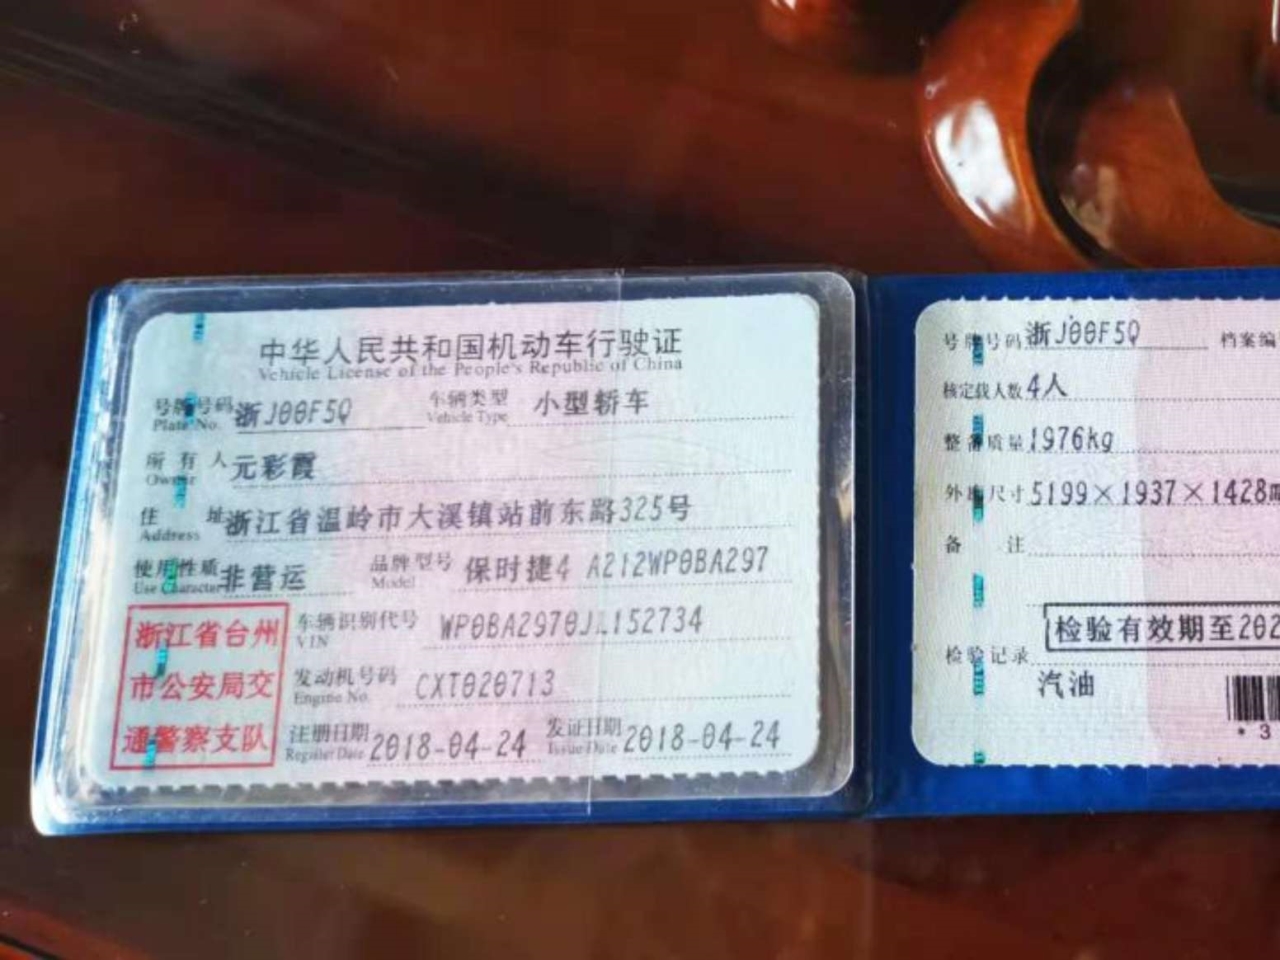 中华人民共和国机动车行驶证
Vehicle License of the People's Republic of China
号牌号码 浙J00F5Q 车辆类型 小型轿车
Plate No. Vehicle Type
所有人 元彩霞
Owner
住址 浙江省温岭市大溪镇站前东路325号
Address
使用性质 非营运 品牌型号 保时捷4 A212WP0BA297
Use Character Model
浙江省台州
市公安局交
通警察支队
车辆识别代号 WP0BA2970JL152734
VIN
发动机号码 CXT020713
Engine No.
注册日期 2018-04-24 发证日期 2018-04-24
Register Date Issue Date
号牌号码 浙J00F5Q 档案编
核定载人数 4人
整备质量 1976kg
外廓尺寸 5199×1937×1428m
备注
检验有效期至202
检验记录
汽油
*3